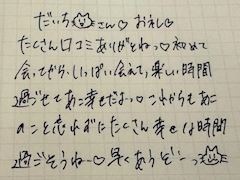 だいち さん♡ おれし♡
たくさん口コミありがとねっ♡初めて
会ってから、いっぱい会えて、楽しい時間
過ごせてあこ幸せだよっ♡これからもあこ
のこと忘れずにたくさん幸せな時間
過ごそうね〜♡早くあうぞーっ